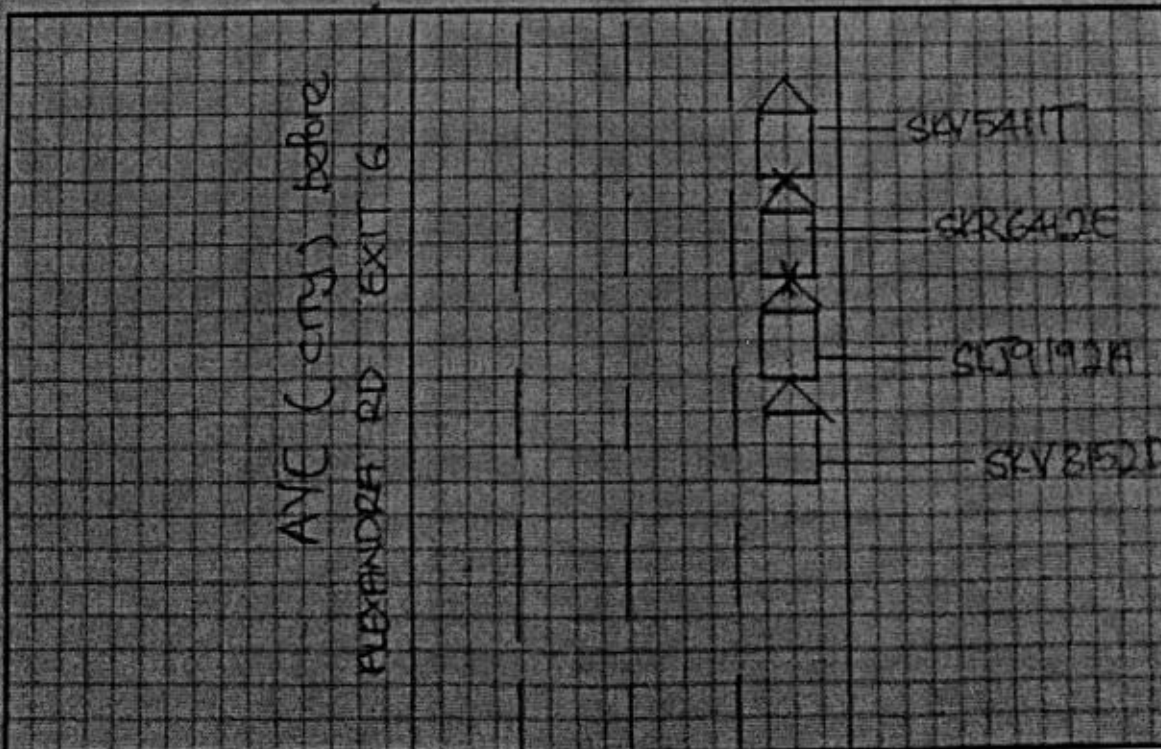 AYE (city) before
ALEXANDRA RD EXIT 6
SKV5411T
SKR6412E
SLJ9192A
SKV8152D